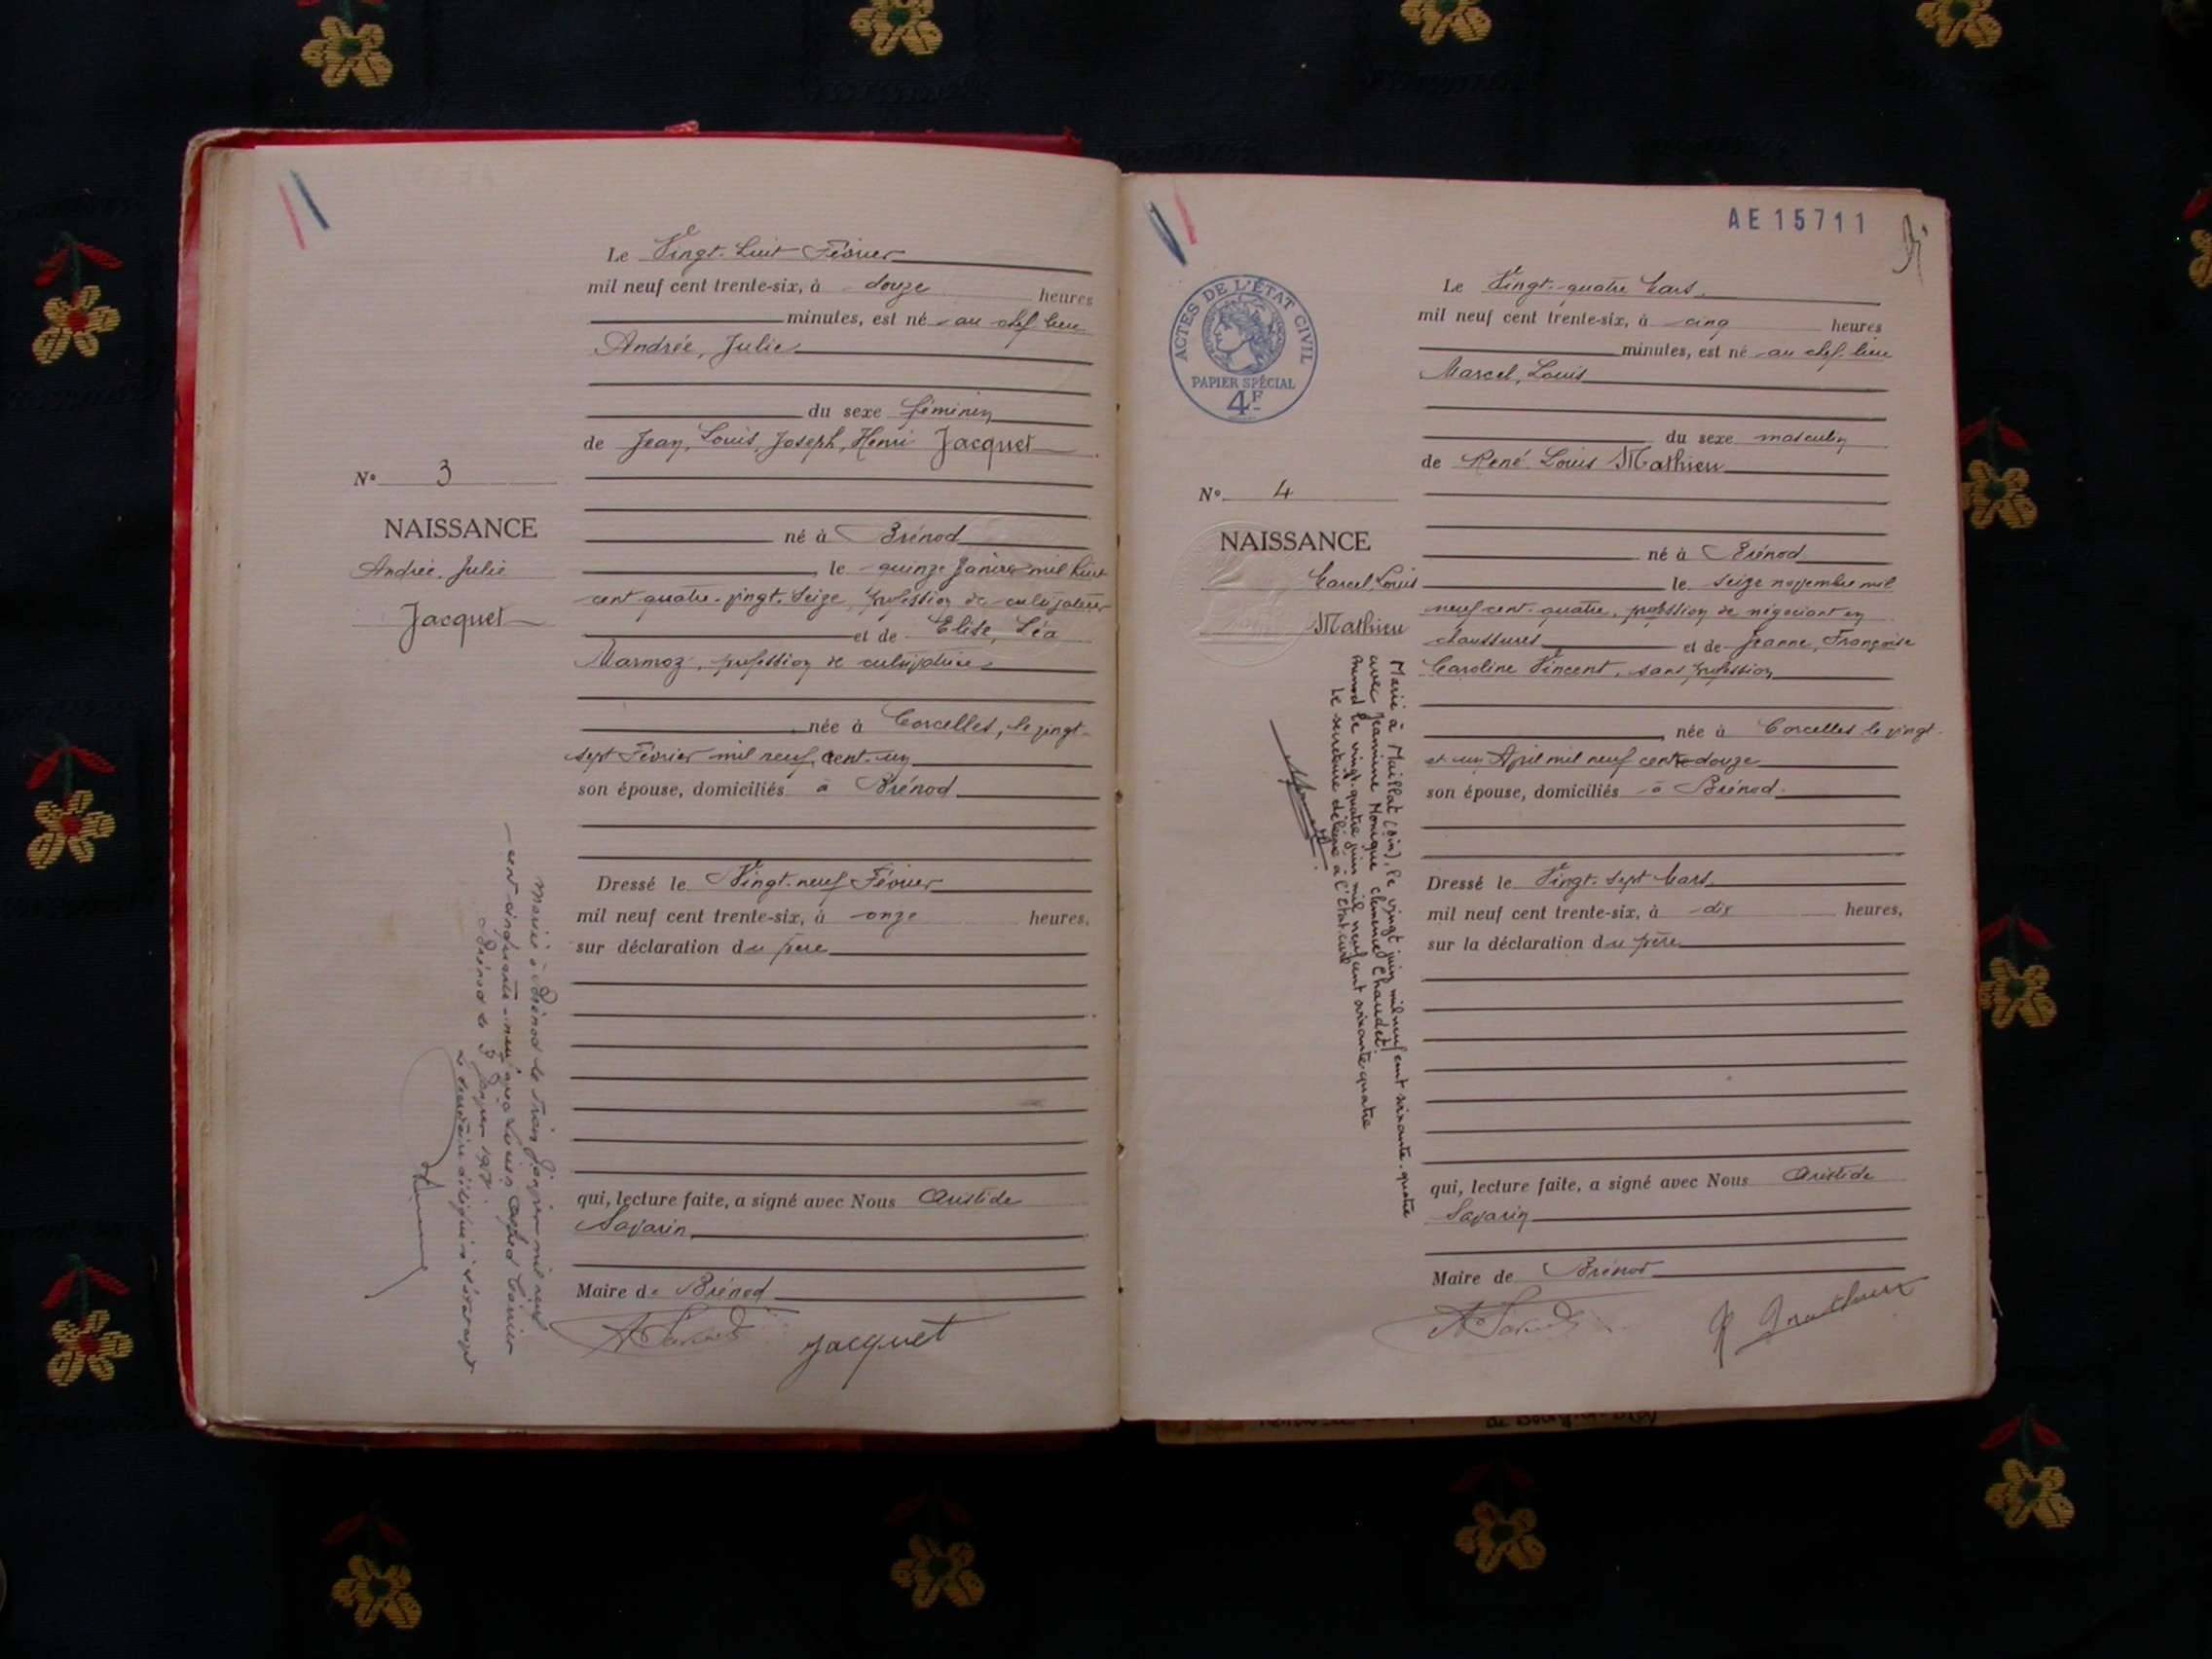 Le Vingt-huit Février
mil neuf cent trente-six, à douze heures
minutes, est né au chef-lieu
Andrée, Julie
du sexe féminin
de Jean, Louis, Joseph, Henri Jacquet
N° 3
NAISSANCE
Andrée, Julie
Jacquet
né à Brénod
, le quinze Janvier mil huit
cent quatre-vingt-seize, profession de cultivateur
et de Elise, Léa
Marmoz, profession de cultivatrice
, née à Corcelles, le vingt-
sept Février mil neuf cent un
son épouse, domiciliés à Brénod
Dressé le Vingt-neuf Février
mil neuf cent trente-six, à onze heures.
sur déclaration du père
qui, lecture faite, a signé avec Nous Aristide
Savarin
Maire de Brénod
Jacquet
Mariée à Brénod le trois Janvier mil neuf
cent cinquante-neuf avec
Brénod le Janvier
Le secrétaire délégué à l'état civil
AE15711
ACTES DE L'ÉTAT CIVIL
PAPIER SPÉCIAL
4F
Le Vingt-quatre Mars
mil neuf cent trente-six, à cinq heures
minutes, est né au chef-lieu
Marcel, Louis
du sexe masculin
de René Louis Mathieu
N° 4
NAISSANCE
Marcel, Louis
Mathieu
né à Brénod
le seize novembre mil
neuf cent quatre, profession de négociant en
chaussures et de Jeanne, Françoise
Caroline Vincent, sans profession
, née à Corcelles le vingt-
et un Avril mil neuf cent douze
son épouse, domiciliés à Brénod
Dressé le Vingt-sept Mars
mil neuf cent trente-six, à dix heures,
sur la déclaration du père
qui, lecture faite, a signé avec Nous Aristide
Savarin
Maire de Brénod
Marié à Maillat (Ain), le vingt juin mil neuf cent soixante-quatre
avec Jeannine Monique Clémence Chaudet
Brénod le vingt-quatre juin mil neuf cent soixante quatre
Le secrétaire délégué à l'état civil